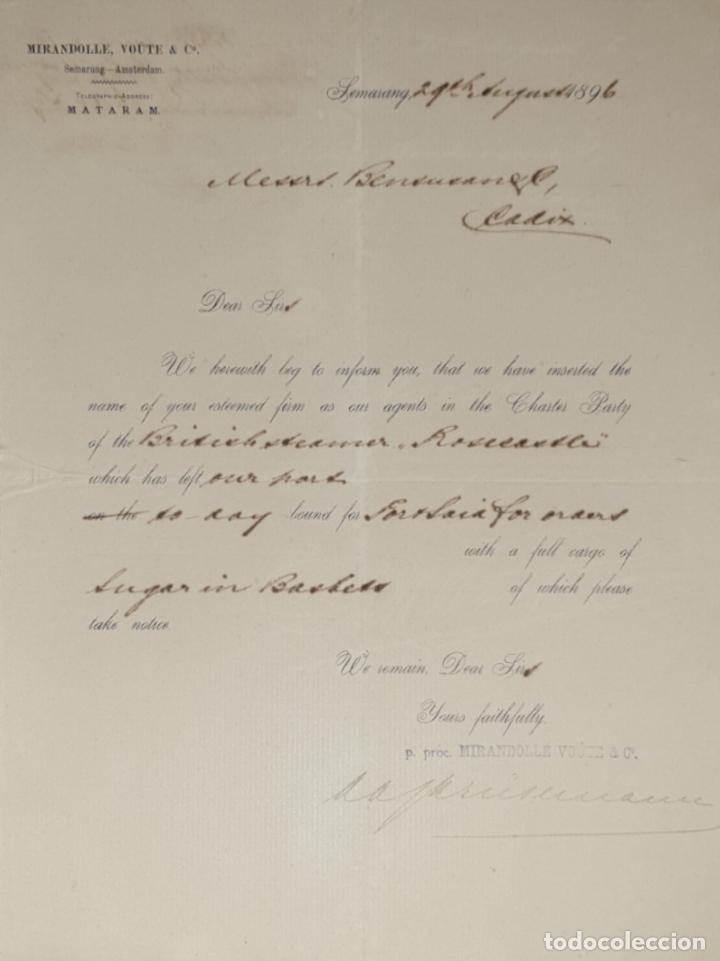 MIRANDOLLE, VOÛTE & Co.
Semarang–Amsterdam.
TELEGRAPHIC-ADDRESS:
MATARAM.
Semarang, 29th August 1896
Messrs. Bensusan & Co,
Cadix.
Dear Sirs
We herewith beg to inform you, that we have inserted the
name of your esteemed firm as our agents in the Charter Party
of the British steamer "Rosecastle"
which has left our port
on the to-day bound for Port Said for orders
with a full cargo of
Sugar in Baskets of which please
take notice.
We remain, Dear Sirs
Yours faithfully,
p. proc. MIRANDOLLE VOÛTE & Co.
todocoleccion